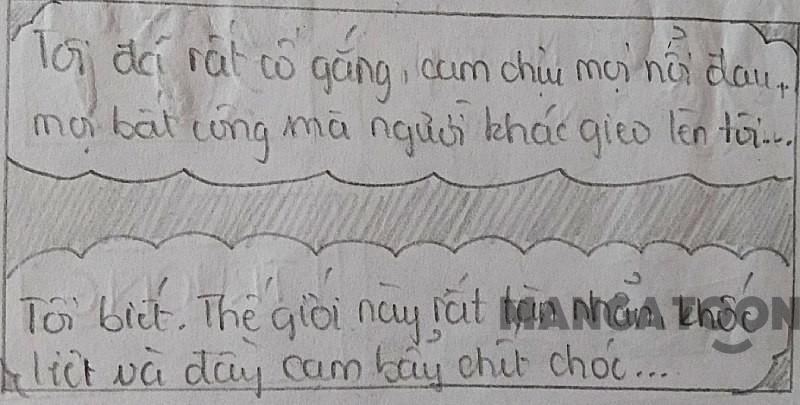 Tôi đã rất cố gắng, cam chịu mọi nỗi đau,
mọi bất công mà người khác gieo lên tôi...
Tôi biết. Thế giới này rất tàn nhẫn, khốc
liệt và đầy cam bẫy chết chóc...
MANGATOON